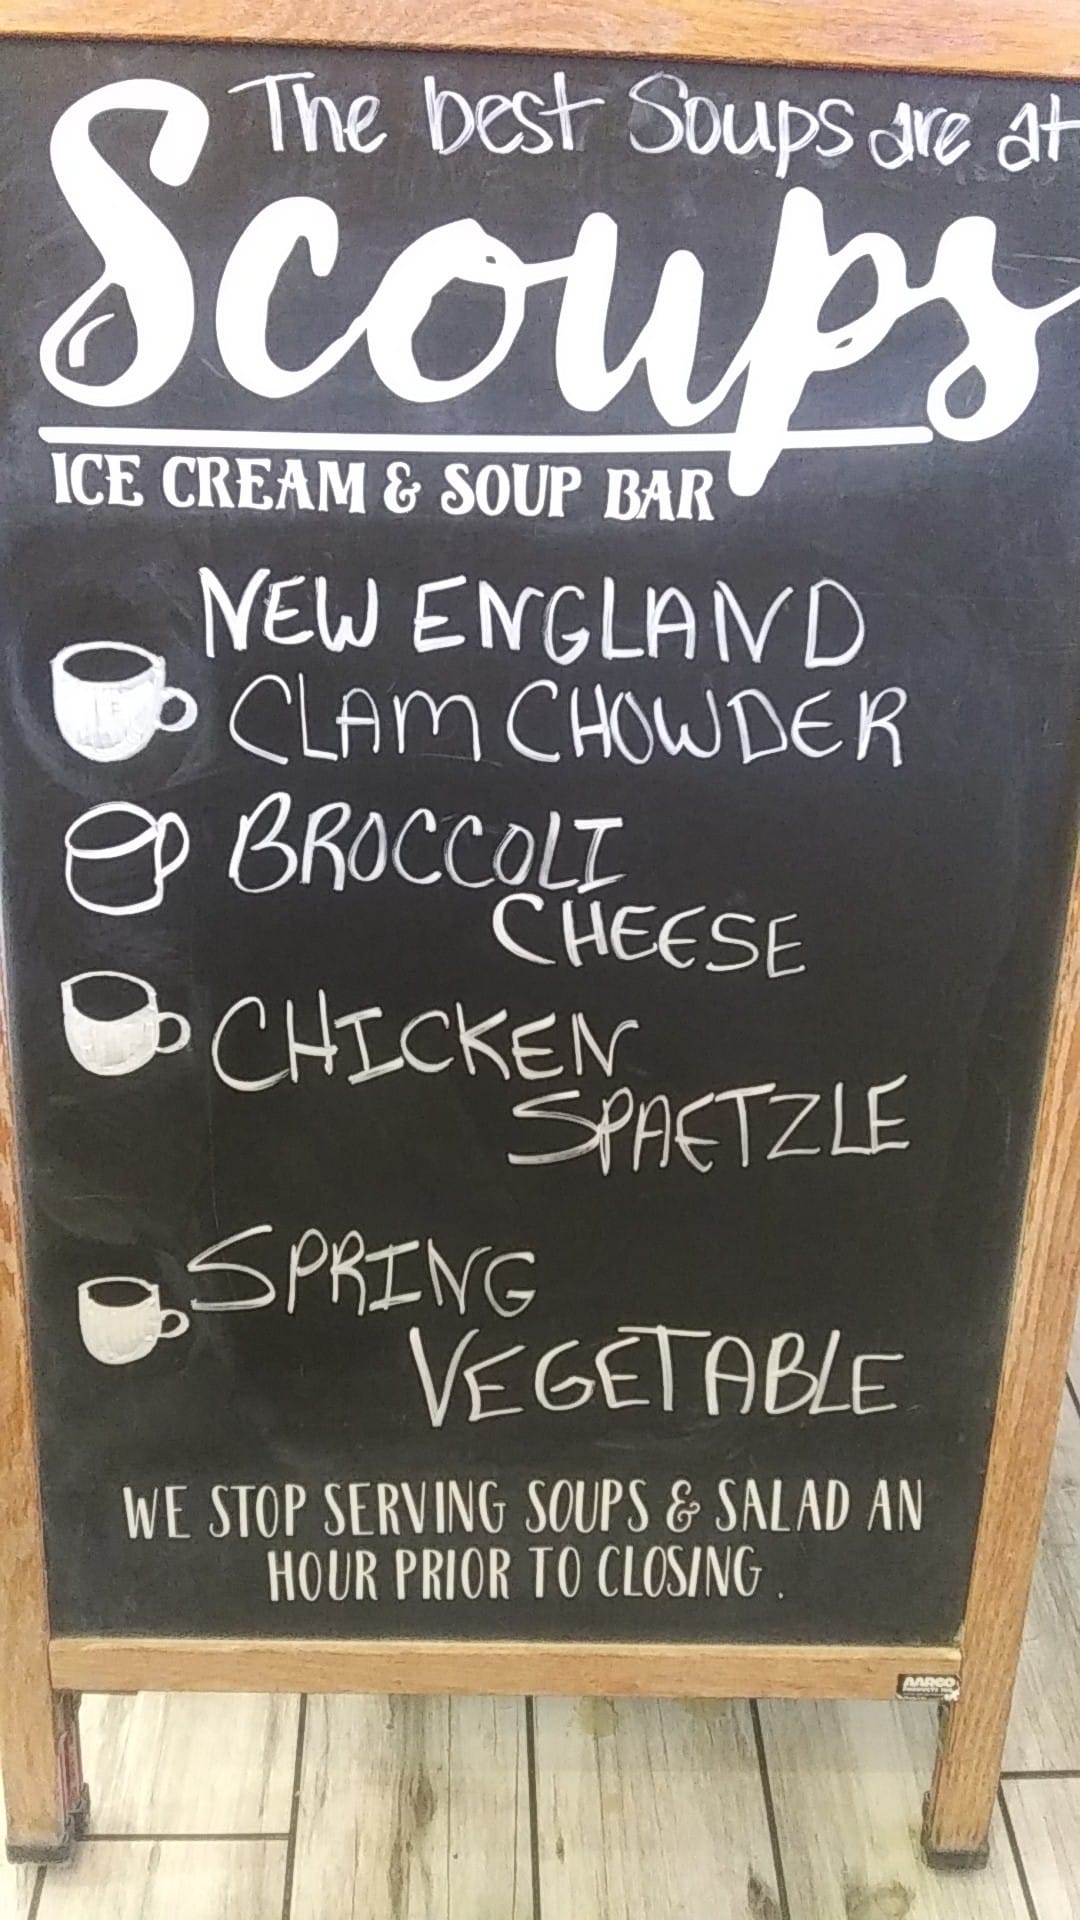 The best Soups are at
Scoups
ICE CREAM & SOUP BAR
NEW ENGLAND
CLAM CHOWDER
BROCCOLI
CHEESE
CHICKEN
SPAETZLE
SPRING
VEGETABLE
WE STOP SERVING SOUPS & SALAD AN
HOUR PRIOR TO CLOSING.
AARCO